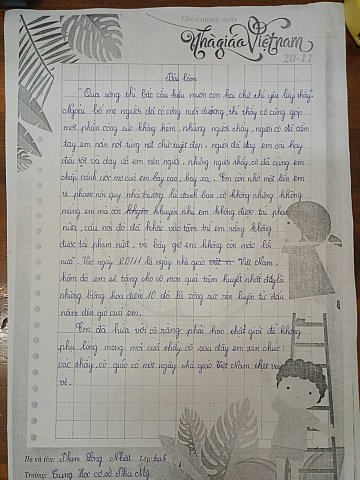 Chào mừng ngày
Nhà giáo Việt Nam
20-11
Bài làm
"Qua sông thì bắc cầu kiều muốn con hay chữ thì yêu lấy thầy".
Ngoài bố mẹ người đã có công nuôi dưỡng, thì thầy cô cũng góp
một phần công sức không kém, những người thầy, người cô đã cầm
tay em nắn nót từng nét chữ tuyệt đẹp, người đã dạy em cái hay
đầu tiên và dạy dỗ em nên người, những người thầy, cô đã cùng em
chắp cánh ước mơ của em bay cao, bay xa. Em còn nhớ một lần em
vi phạm nội quy nhà trường là đánh bạn, cô không những không
mắng em mà còn khuyên nhủ em không được tái phạm
nữa, câu nói đó đã khắc vào tâm trí em rằng không
được tái phạm nữa, và bây giờ em không còn mắc lỗi
nữa. Vào ngày 20/11 là ngày nhà giáo Việt Nam,
hôm đó em sẽ tặng cho cô món quà tâm huyết nhất đấy là
những bông hoa điểm 10 đó là công sức rèn luyện từ đầu
năm đến giờ của em.
Em đã hứa với cô rằng phải học thật giỏi để không
phụ lòng mong mỏi của thầy cô sau đây em xin chúc:
các thầy, cô giáo có một ngày nhà giáo Việt Nam thật vui
vẻ.
Họ và tên: Phạm Long Nhật Lớp: 6a6
Trường: Trung Học cơ sở Phú Mỹ